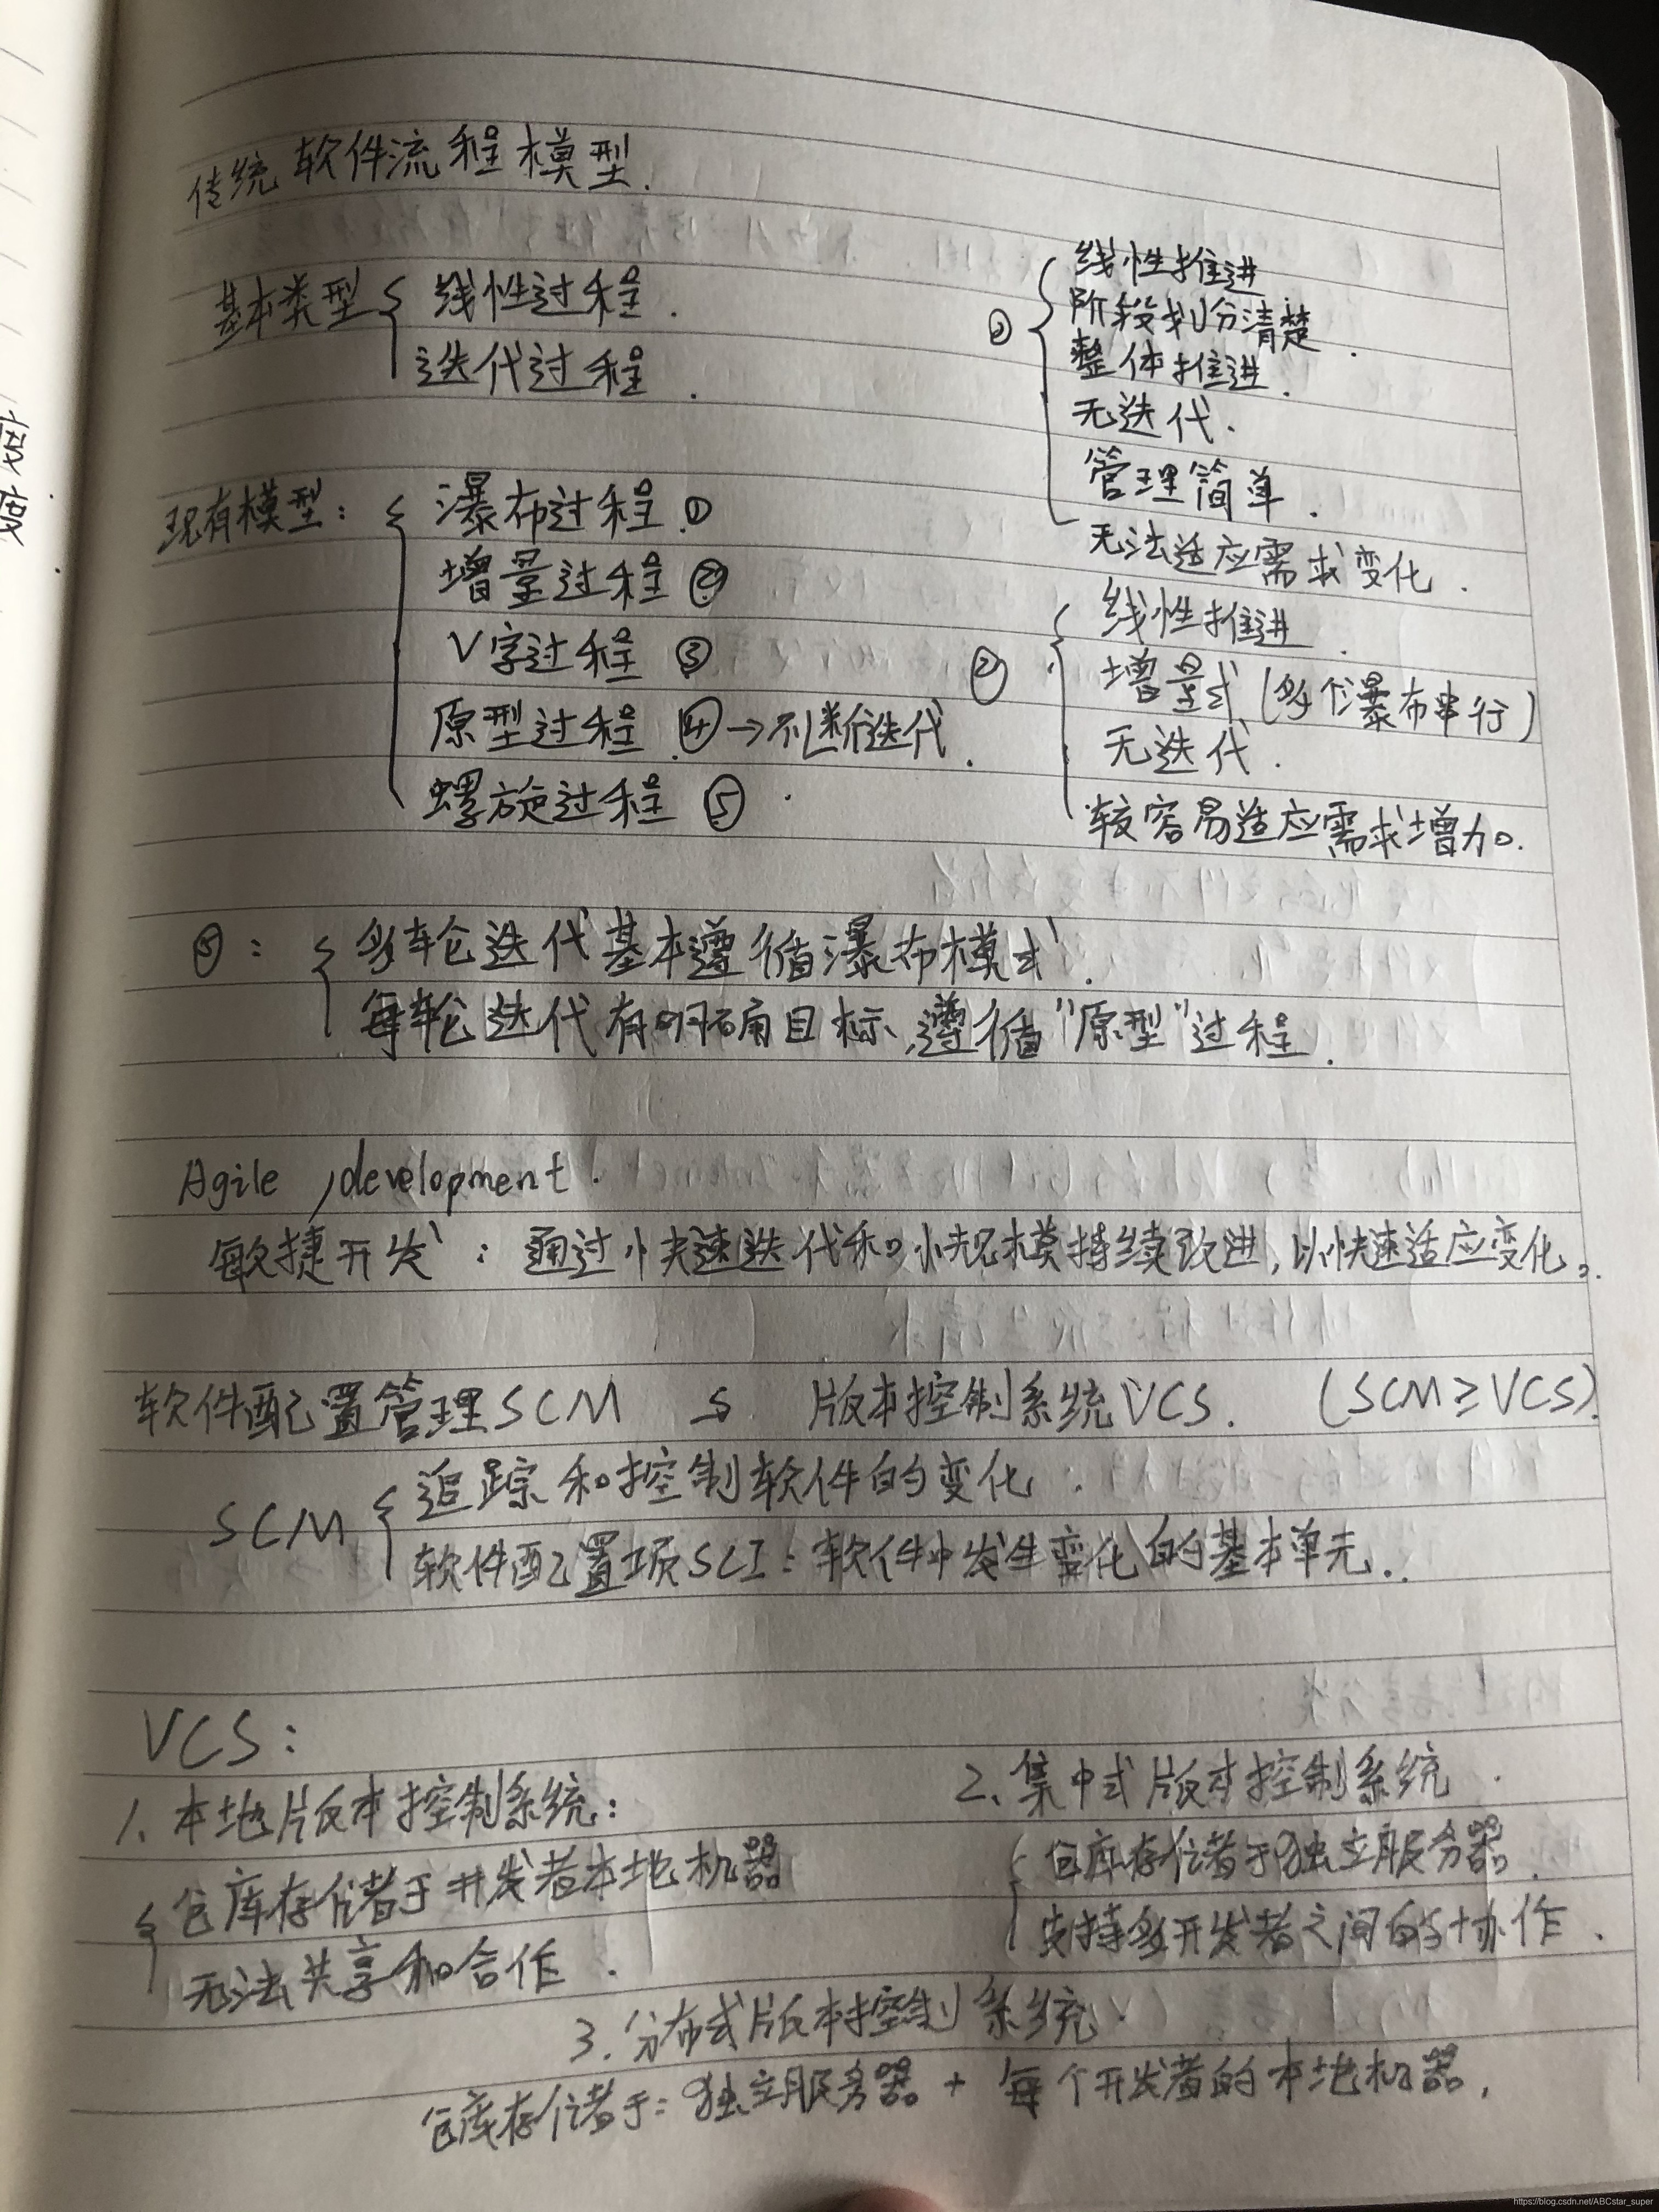 传统软件流程模型.
基本类型 { 线性过程.
迭代过程.
线性推进
阶段划分清楚.
整体推进.
无迭代.
管理简单.
无法适应需求变化.
现有模型: { 瀑布过程 ①
增量过程 ②
V字过程 ③
原型过程 ④→不断迭代.
螺旋过程 ⑤
② { 线性推进.
增量式(多个瀑布串行)
无迭代.
较容易适应需求增加.
⑤: { 多轮迭代基本遵循瀑布模式.
每轮迭代有明确目标,遵循"原型"过程.
Agile development.
敏捷开发: 通过快速迭代和小规模持续改进,以快速适应变化。
软件配置管理SCM 与 版本控制系统VCS. (SCM≥VCS).
SCM { 追踪和控制软件的变化.
软件配置项SCI: 软件中发生变化的基本单元.
VCS:
1. 本地版本控制系统:
{ 仓库存储于开发者本地机器
无法共享和合作.
2. 集中式版本控制系统.
{ 仓库存储于独立服务器.
支持多开发者之间的协作.
3. 分布式版本控制系统.
仓库存储于: 独立服务器 + 每个开发者的本地机器.
https://blog.csdn.net/ABCstar_super